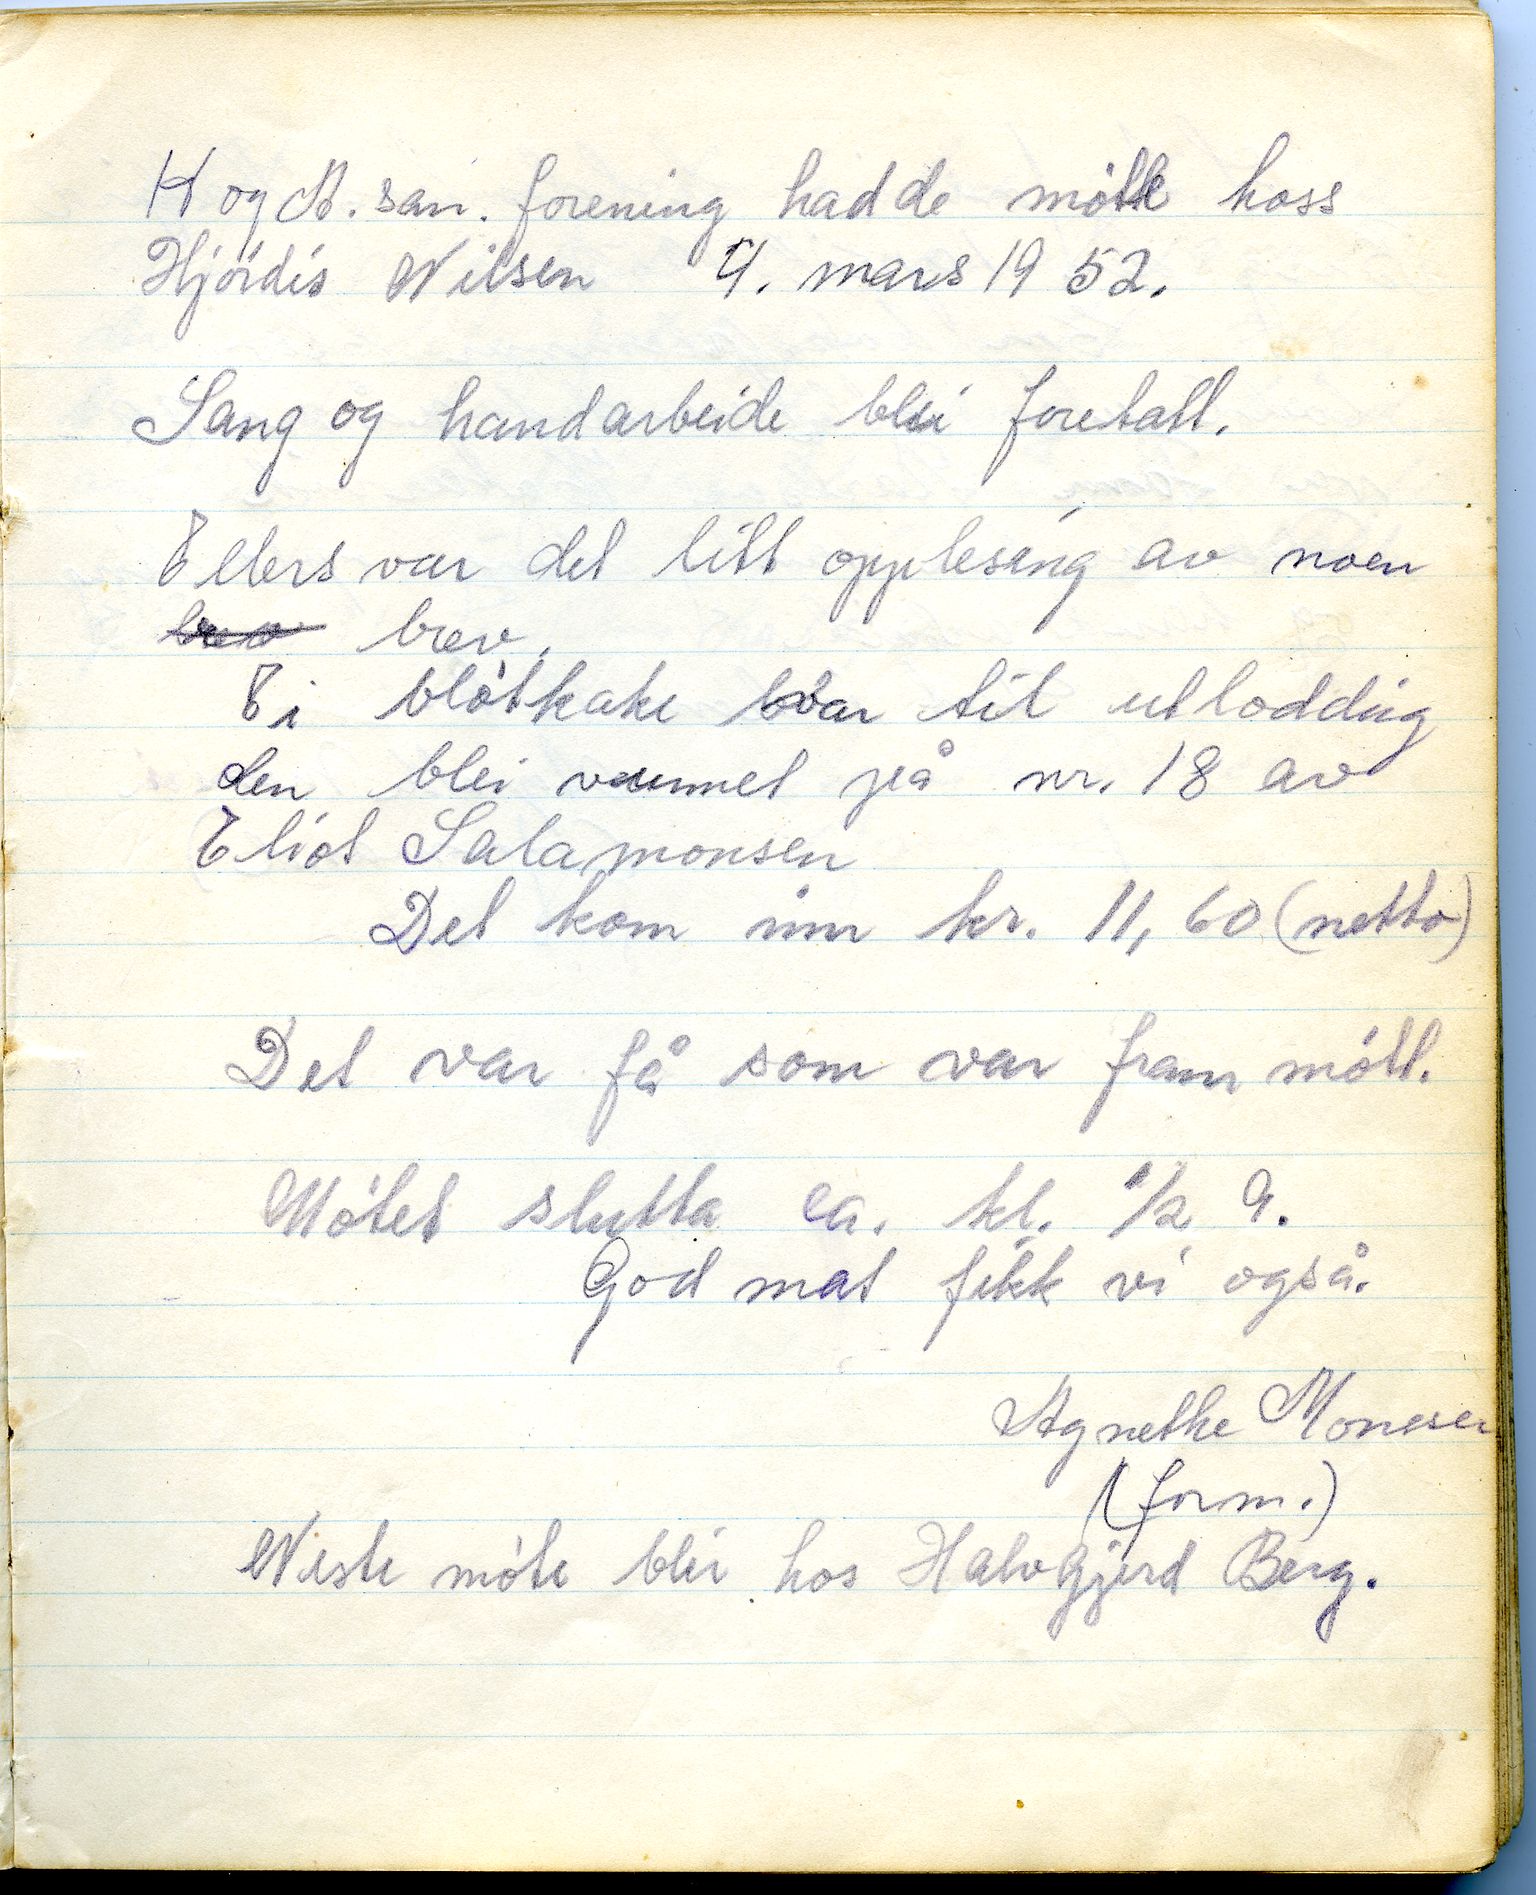 H og N. san. forening hadde møte hoss
Hjørdis Nilsen 4. mars 1952.
Sang og handarbeide blei foretatt.
Ellers var det litt opplesing av noen
brev.
Ei bløtkake var til utlodding
den blei vunnet på nr. 18 av
Eliot Salamonsen
Det kom inn kr. 11,60 (netto)
Det var få som var fram møtt.
Møtet slutta ca. kl. 1/2 9.
God mat fikk vi også.
Agnethe Monesen
(form.)
Neste møte blir hos Halvgjerd Berg.